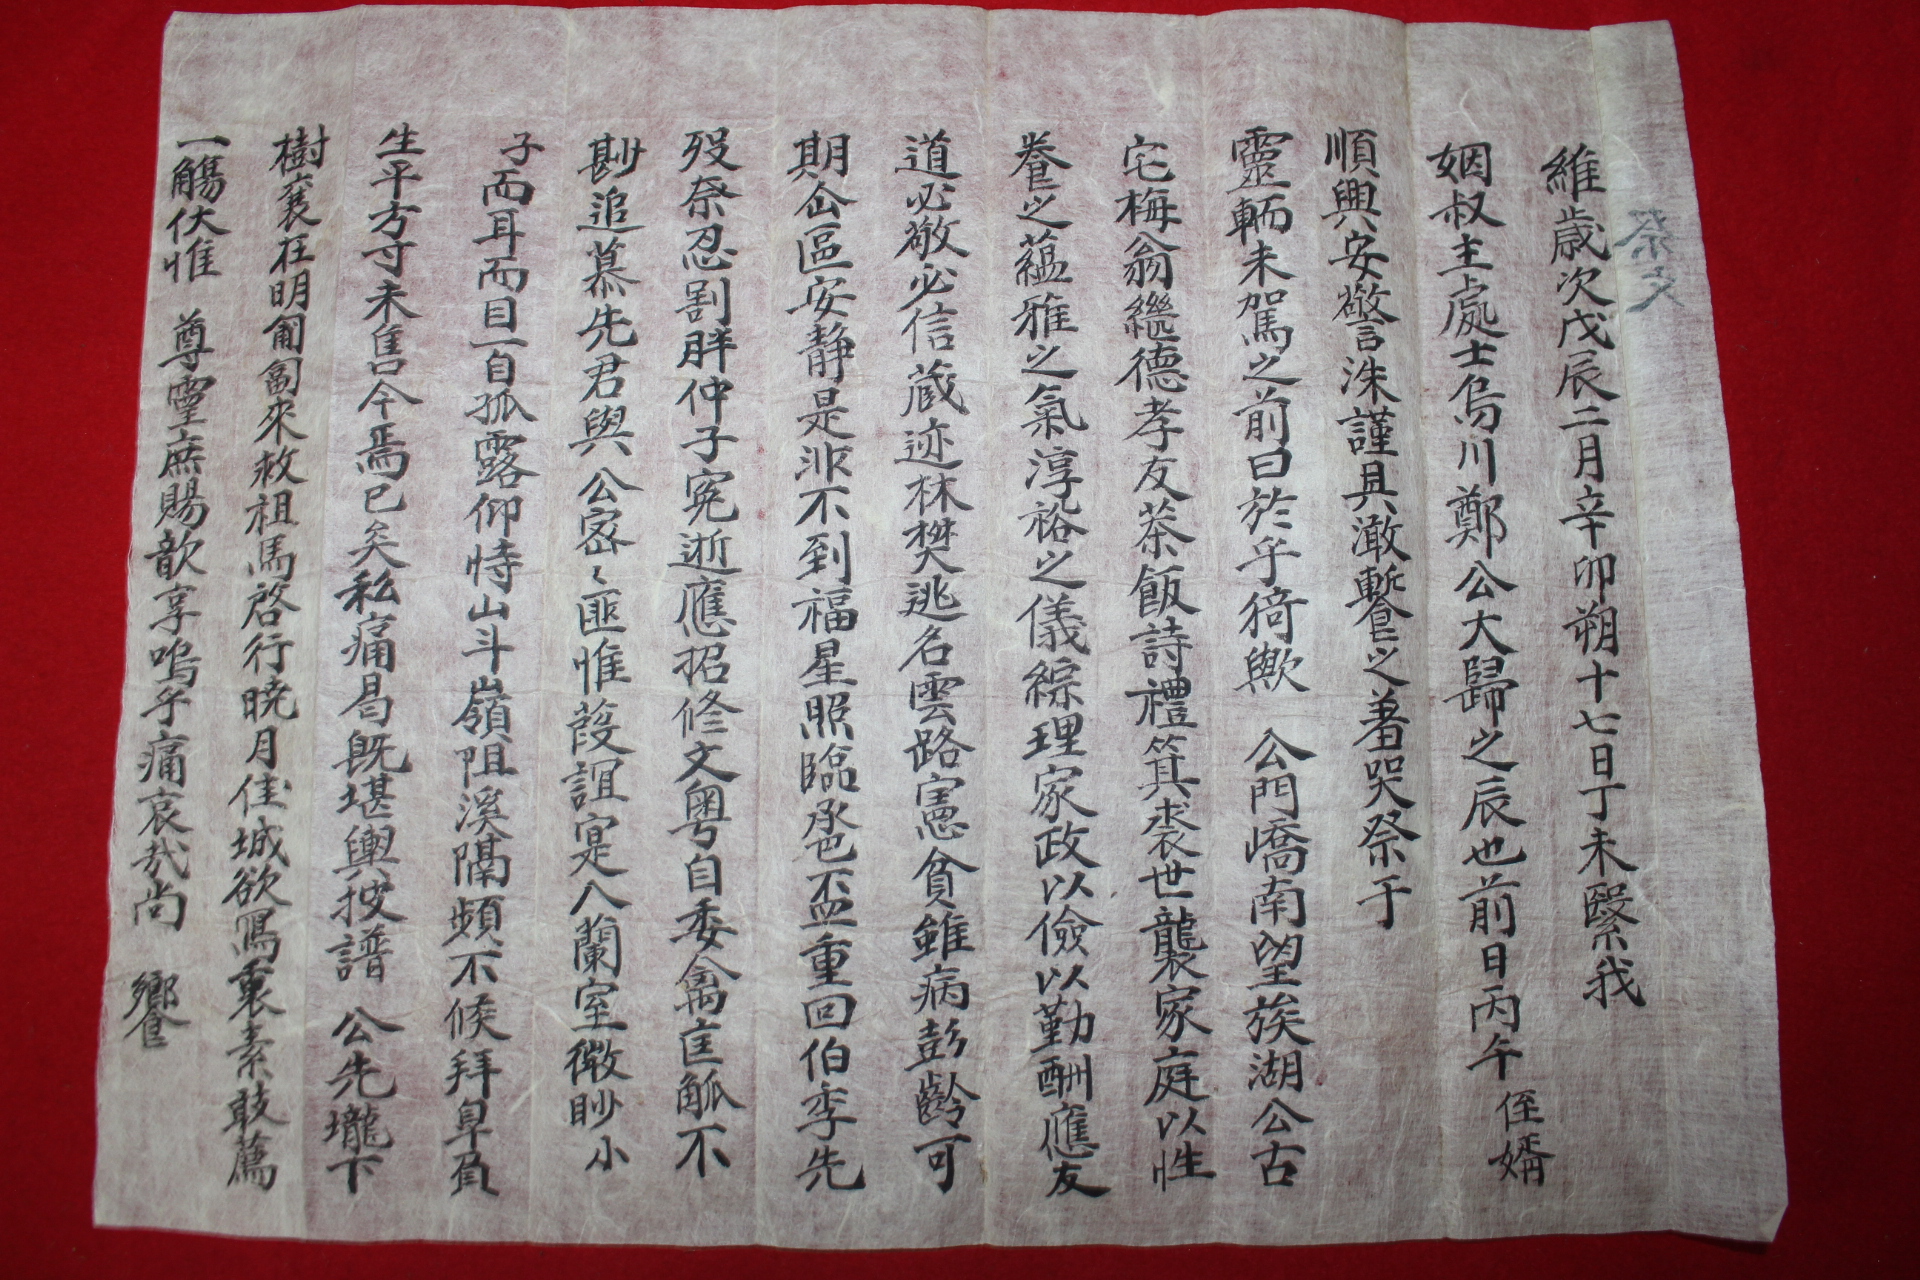 祭文
維歲次戊辰二月辛卯朔十七日丁未緊我
姻叔主處士烏川鄭公大歸之辰也前日丙午 侄婿
順興安警洙謹具澉蹔之羞哭祭于
靈輀未駕之前曰於乎猗歟 公門嶠南望族湖公古
宅梅翁繼德孝友茶飯詩禮箕裘世襲家庭以性
養之蘊雅之氣淳裕之儀綜理家政以儉以勤酬應友
道必敬必信蔵迹林樊逃名雲路憲貧雖病彭齡可
期仚區安静是非不到福星照臨丞巹盃重回伯李先
歿奈忍割胖仲子寃逝應招修文粤自委禽匡觚不
尠追慕先君與 公密々匪惟葭誼寔入蘭室微眇小
子而耳而目一自孤露仰恃山斗嶺阻溪隔頻不候拜阜負
生平方寸未售今焉已矣私痛曷旣堪輿按譜 公先壠下
樹襄在明匍匐來救祖馬啓行曉月佳城欲寫裏素敢薦
一觴伏惟 尊靈庶賜歆享嗚乎痛哀哉尚 饗